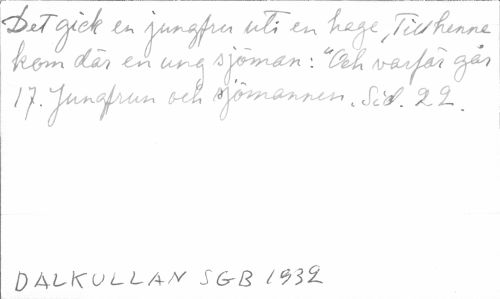 Det gick en jungfru uti en hage, Till henne
kom där en ung sjöman: "Och varför går
17. Jungfrun och sjömannen. Sid. 22.
DALKULLAN SGB 1932